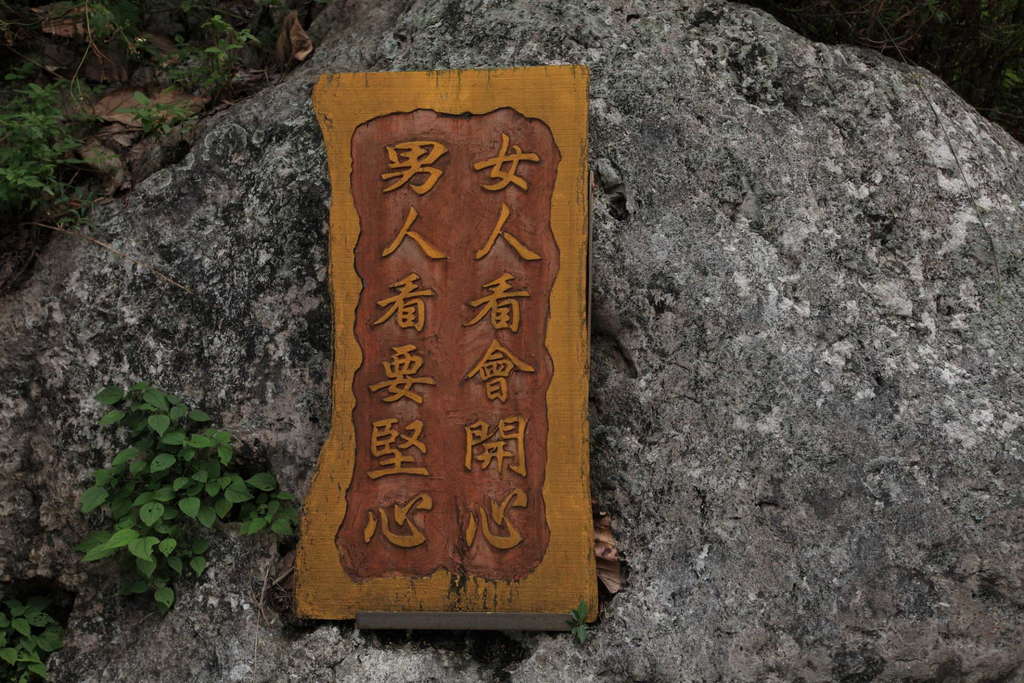 女人看會開心
男人看要堅心